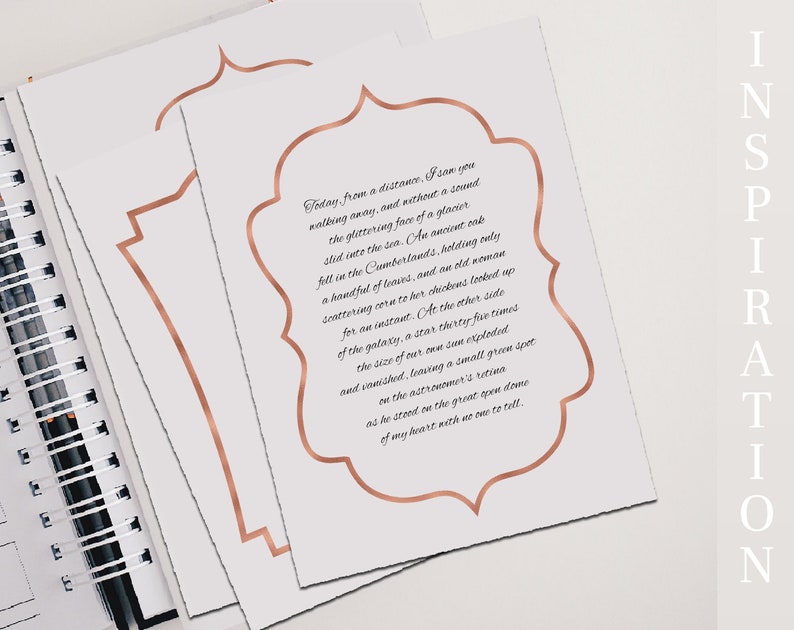 Today, from a distance, I saw you
walking away, and without a sound
the glittering face of a glacier
slid into the sea. An ancient oak
fell in the Cumberlands, holding only
a handful of leaves, and an old woman
scattering corn to her chickens looked up
for an instant. At the other side
of the galaxy, a star thirty-five times
the size of our own sun exploded
and vanished, leaving a small green spot
on the astronomer's retina
as he stood on the great open dome
of my heart with no one to tell.
INSPIRATION